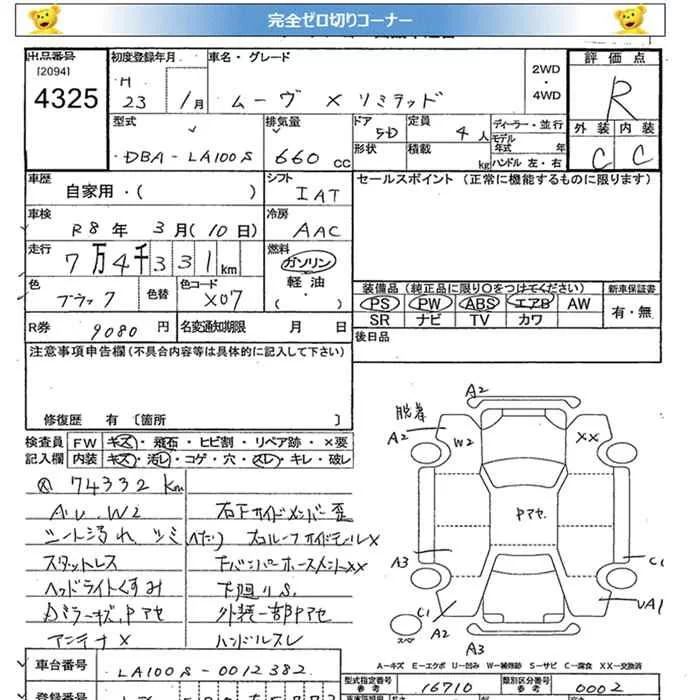 完全ゼロ切りコーナー
出品番号 初度登録年月 車名・グレード 評価点
[2094] 2WD
4325 H 23 1月 ムーヴ X リミテッド ・4WD R
型式 排気量 ドア 5D 定員 4人 ディーラー・並行 外装 内装
モデル年式 年
DBA-LA100S 660cc 形状 積載 kg ハンドル 左・右 C C
車歴 自家用・( ) シフト IAT セールスポイント (正常に機能するものに限ります)
車検 R8年 3月(10日) 冷房 AAC
走行 7万4千331km 燃料 ガソリン
軽油
・( )
色 ブラック 色替 色コード X07 装備品(純正品に限り○をつけてください) 新車保証書
PS PW ABS エアB AW 有・無
SR ナビ TV カワ
R券 9080円 名変通知期限 月 日 後日品
注意事項申告欄(不具合内容等は具体的に記入して下さい)
修復歴 有 〔箇所 〕
検査員 FW キズ・飛石・ヒビ割・リペア跡・×要
記入欄 内装 キズ・汚レ・コゲ・穴・スレ・キレ・破レ
74332km
AU.W2 右下サイドメンバー歪
シート汚れ、シミ
スタットレス
ヘッドライトくすみ 下廻りS.
Dミラーキズ,Pアセ 外装一部Pアセ
アンテナX ハンドルスレ
脱着
A2
A2 W2 XX
Pアセ.
A3 C1
C1 UA1
A2
スペア
A3
A-キズ E-エクボ U-凹み W-補修跡 S-サビ C-腐食 XX-交換済
車台番号 LA100S-0012382 型式指定番号 参考 16710 類別区分番号 参考 0002
登録番号